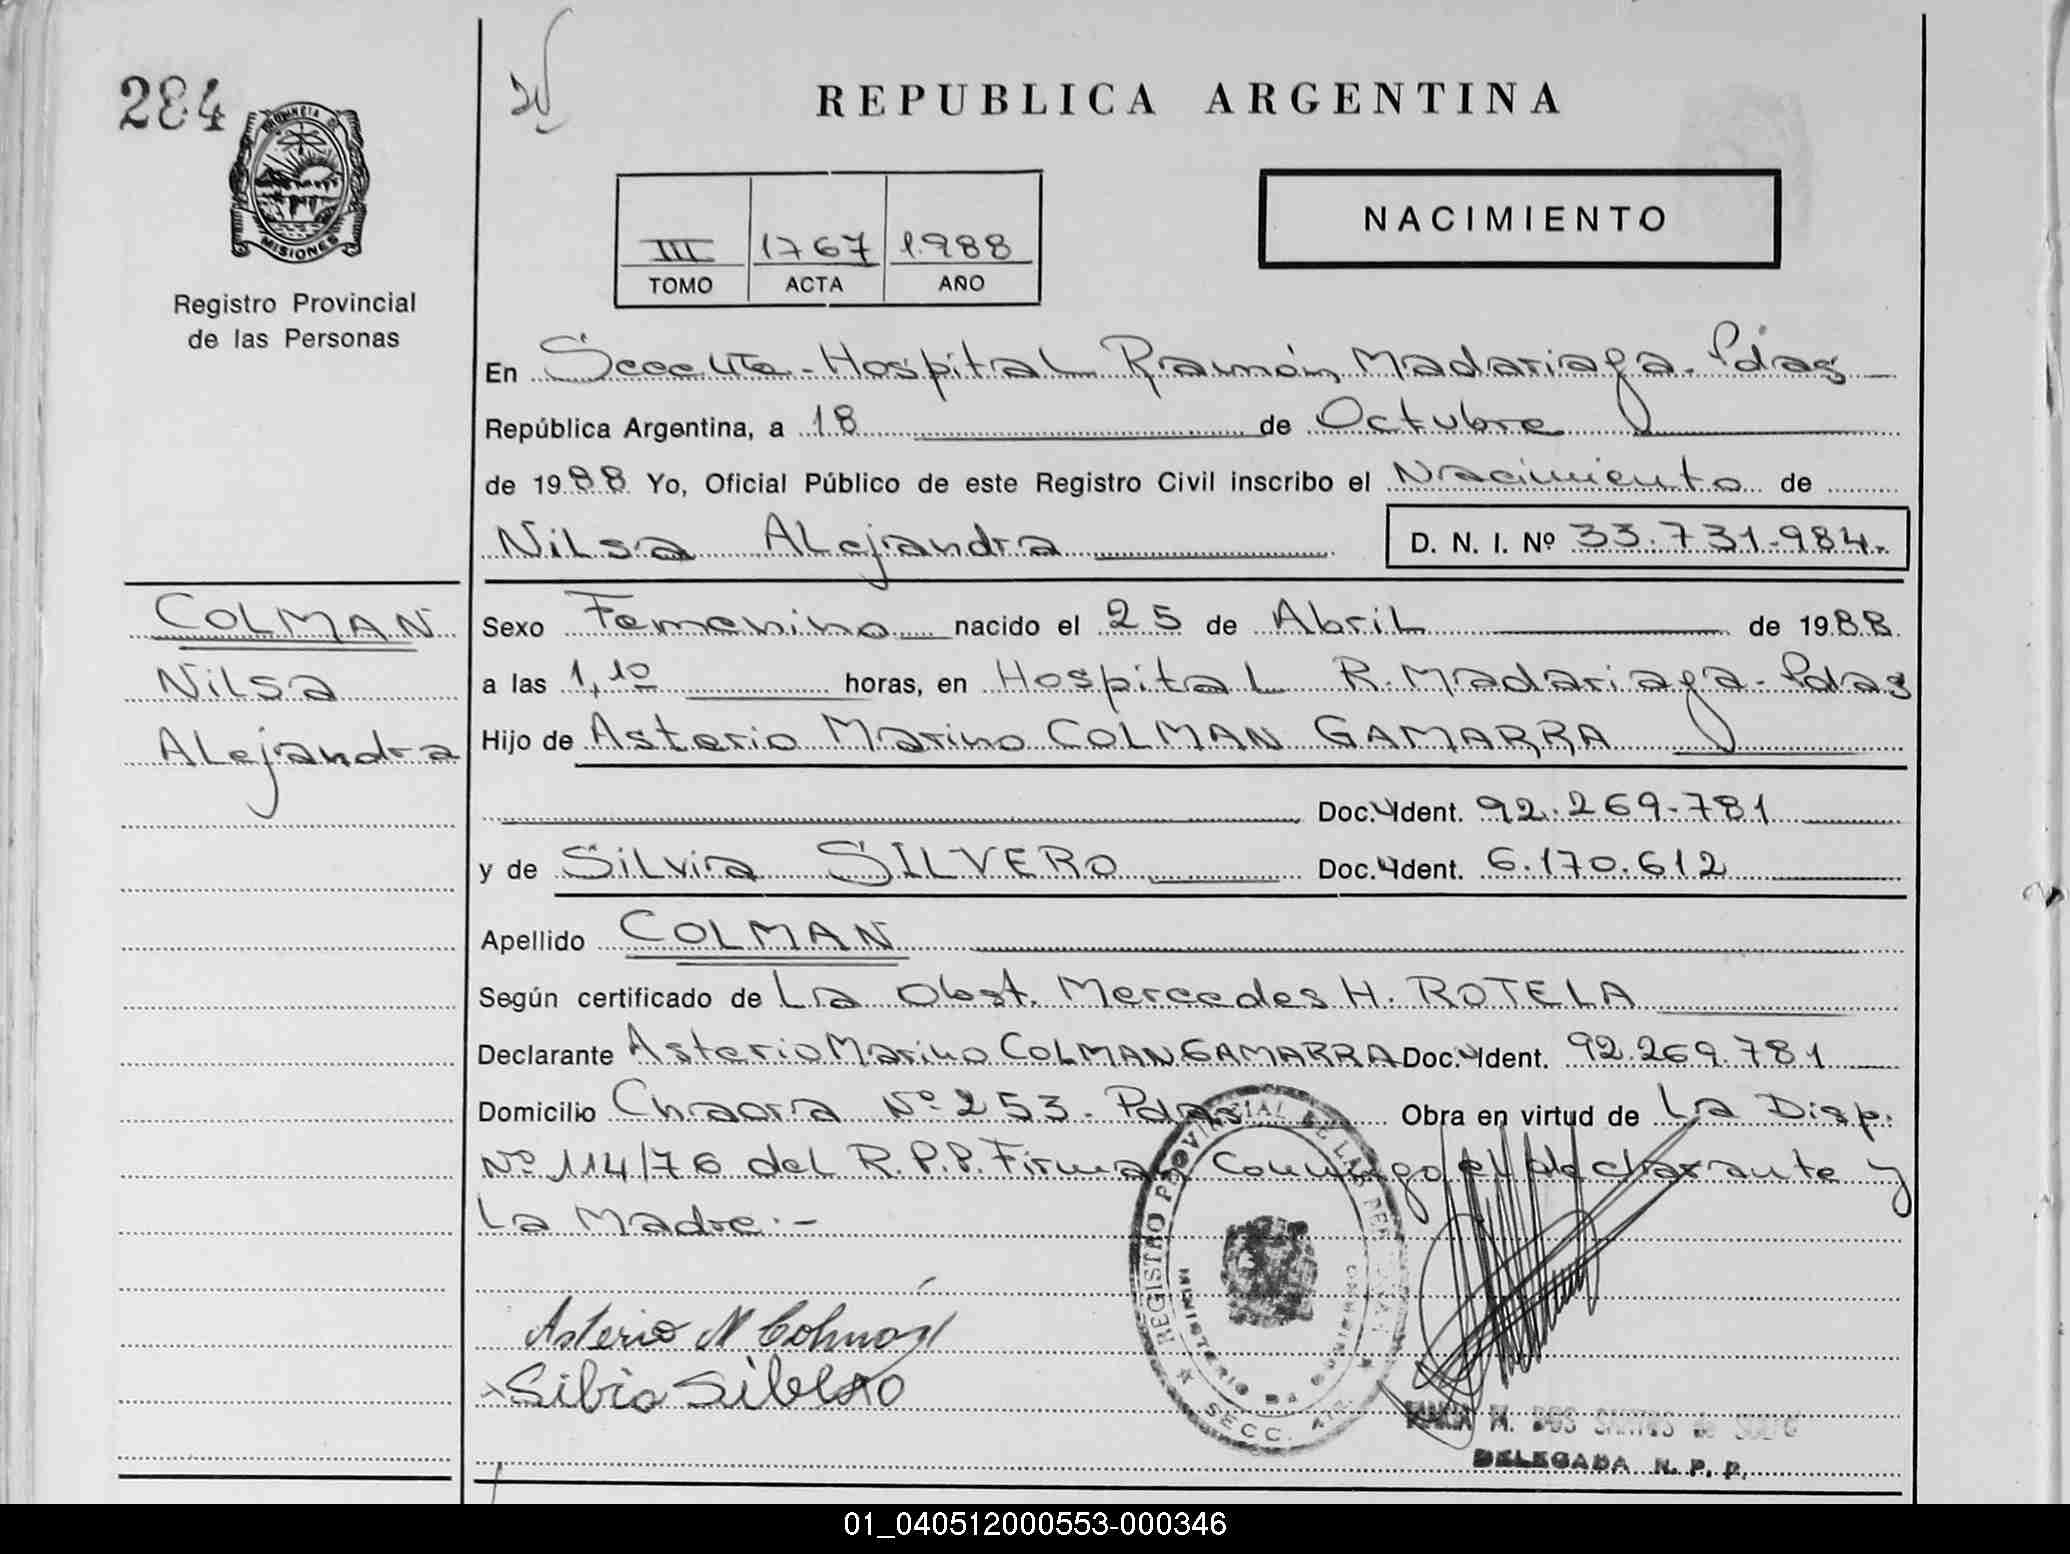 284
PROVINCIA DE
MISIONES
Registro Provincial
de las Personas
REPUBLICA ARGENTINA
III 1767 1.988
TOMO ACTA AÑO
NACIMIENTO
En Secc 4ta - Hospital Ramón Madariaga. Pdas
República Argentina, a 18 de Octubre
de 1988 Yo, Oficial Público de este Registro Civil inscribo el Nacimiento de
Nilsa Alejandra D. N. I. Nº 33.731.984.-
COLMAN
Nilsa
Alejandra
Sexo Femenino nacido el 25 de Abril de 1988.
a las 1,10 horas, en Hospital R. Madariaga - Pdas
Hijo de Asterio Marino COLMAN GAMARRA
Doc. Ident. 92.269.781
y de Silvia SILVERO Doc. Ident. 6.170.612
Apellido COLMAN
Según certificado de La Obst. Mercedes H. ROTELA
Declarante Asterio Marino COLMAN GAMARRA Doc. Ident. 92.269.781
Domicilio Chacra Nº 253 - Pdas Obra en virtud de La Disp.
Nº 114/76 del R.P.P. Firman Conmigo el declarante y
La Madre.-
Asterio M Colman
Silvia Silvero
REGISTRO PROVINCIAL DE LAS PERSONAS
MINISTERIO DE GOBIERNO
SECC. 4ta
M. DOS SANTOS de
DELEGADA R. P. P.
01_040512000553-000346